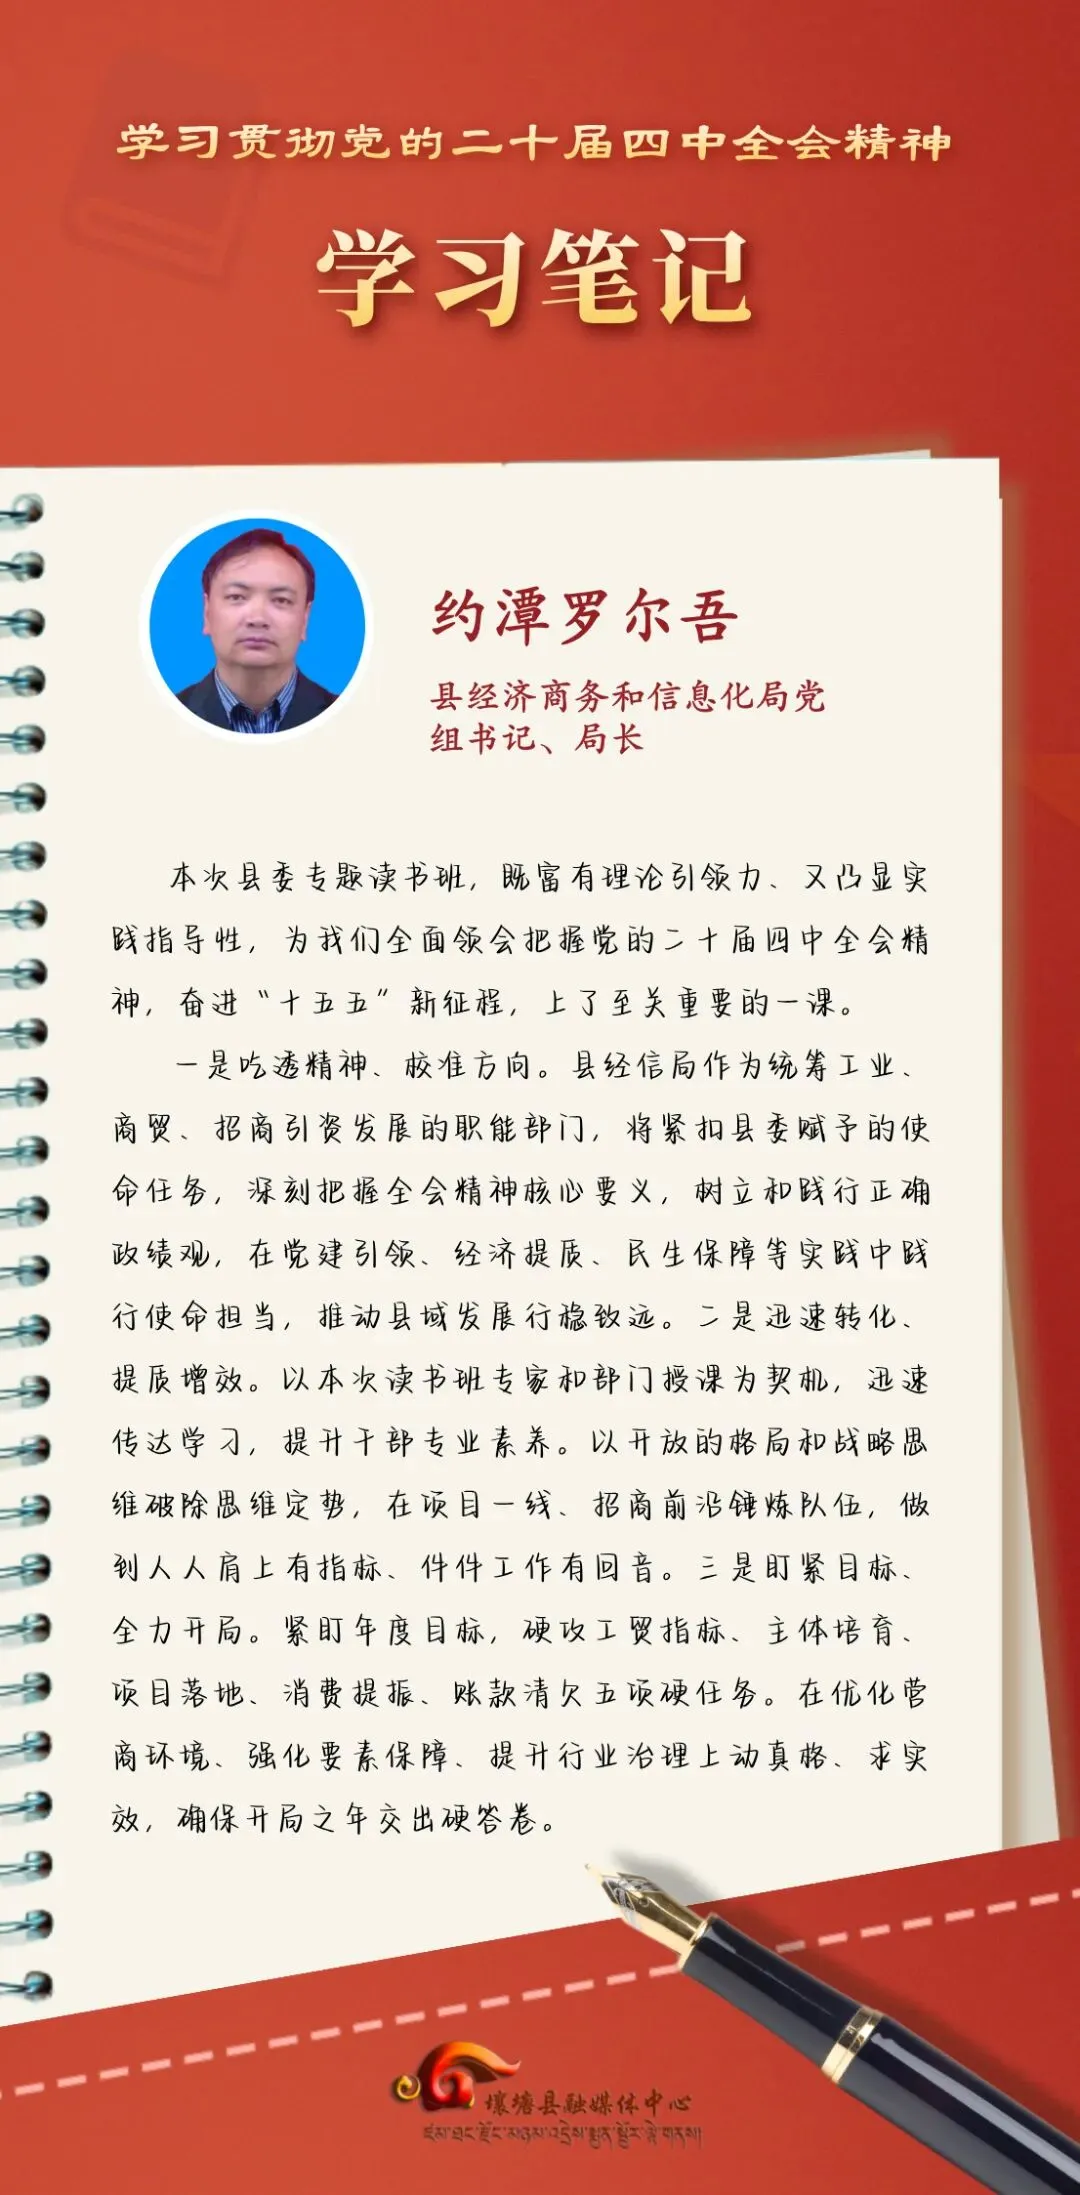 学习贯彻党的二十届四中全会精神
学习笔记
约潭罗尔吾
县经济商务和信息化局党
组书记、局长
本次县委专题读书班，既富有理论引领力、又凸显实
践指导性，为我们全面领会把握党的二十届四中全会精
神，奋进“十五五”新征程，上了至关重要的一课。
一是吃透精神、校准方向。县经信局作为统筹工业、
商贸、招商引资发展的职能部门，将紧扣县委赋予的使
命任务，深刻把握全会精神核心要义，树立和践行正确
政绩观，在党建引领、经济提质、民生保障等实践中践
行使命担当，推动县域发展行稳致远。二是迅速转化、
提质增效。以本次读书班专家和部门授课为契机，迅速
传达学习，提升干部专业素养。以开放的格局和战略思
维破除思维定势，在项目一线、招商前沿锤炼队伍，做
到人人肩上有指标、件件工作有回音。三是盯紧目标、
全力开局。紧盯年度目标，硬攻工贸指标、主体培育、
项目落地、消费提振、账款清欠五项硬任务。在优化营
商环境、强化要素保障、提升行业治理上动真格、求实
效，确保开局之年交出硬答卷。
壤塘县融媒体中心
འཛམ་ཐང་རྫོང་མཉམ་འདྲེས་སྨྱན་སྦྱོར་ལྟེ་གནས།